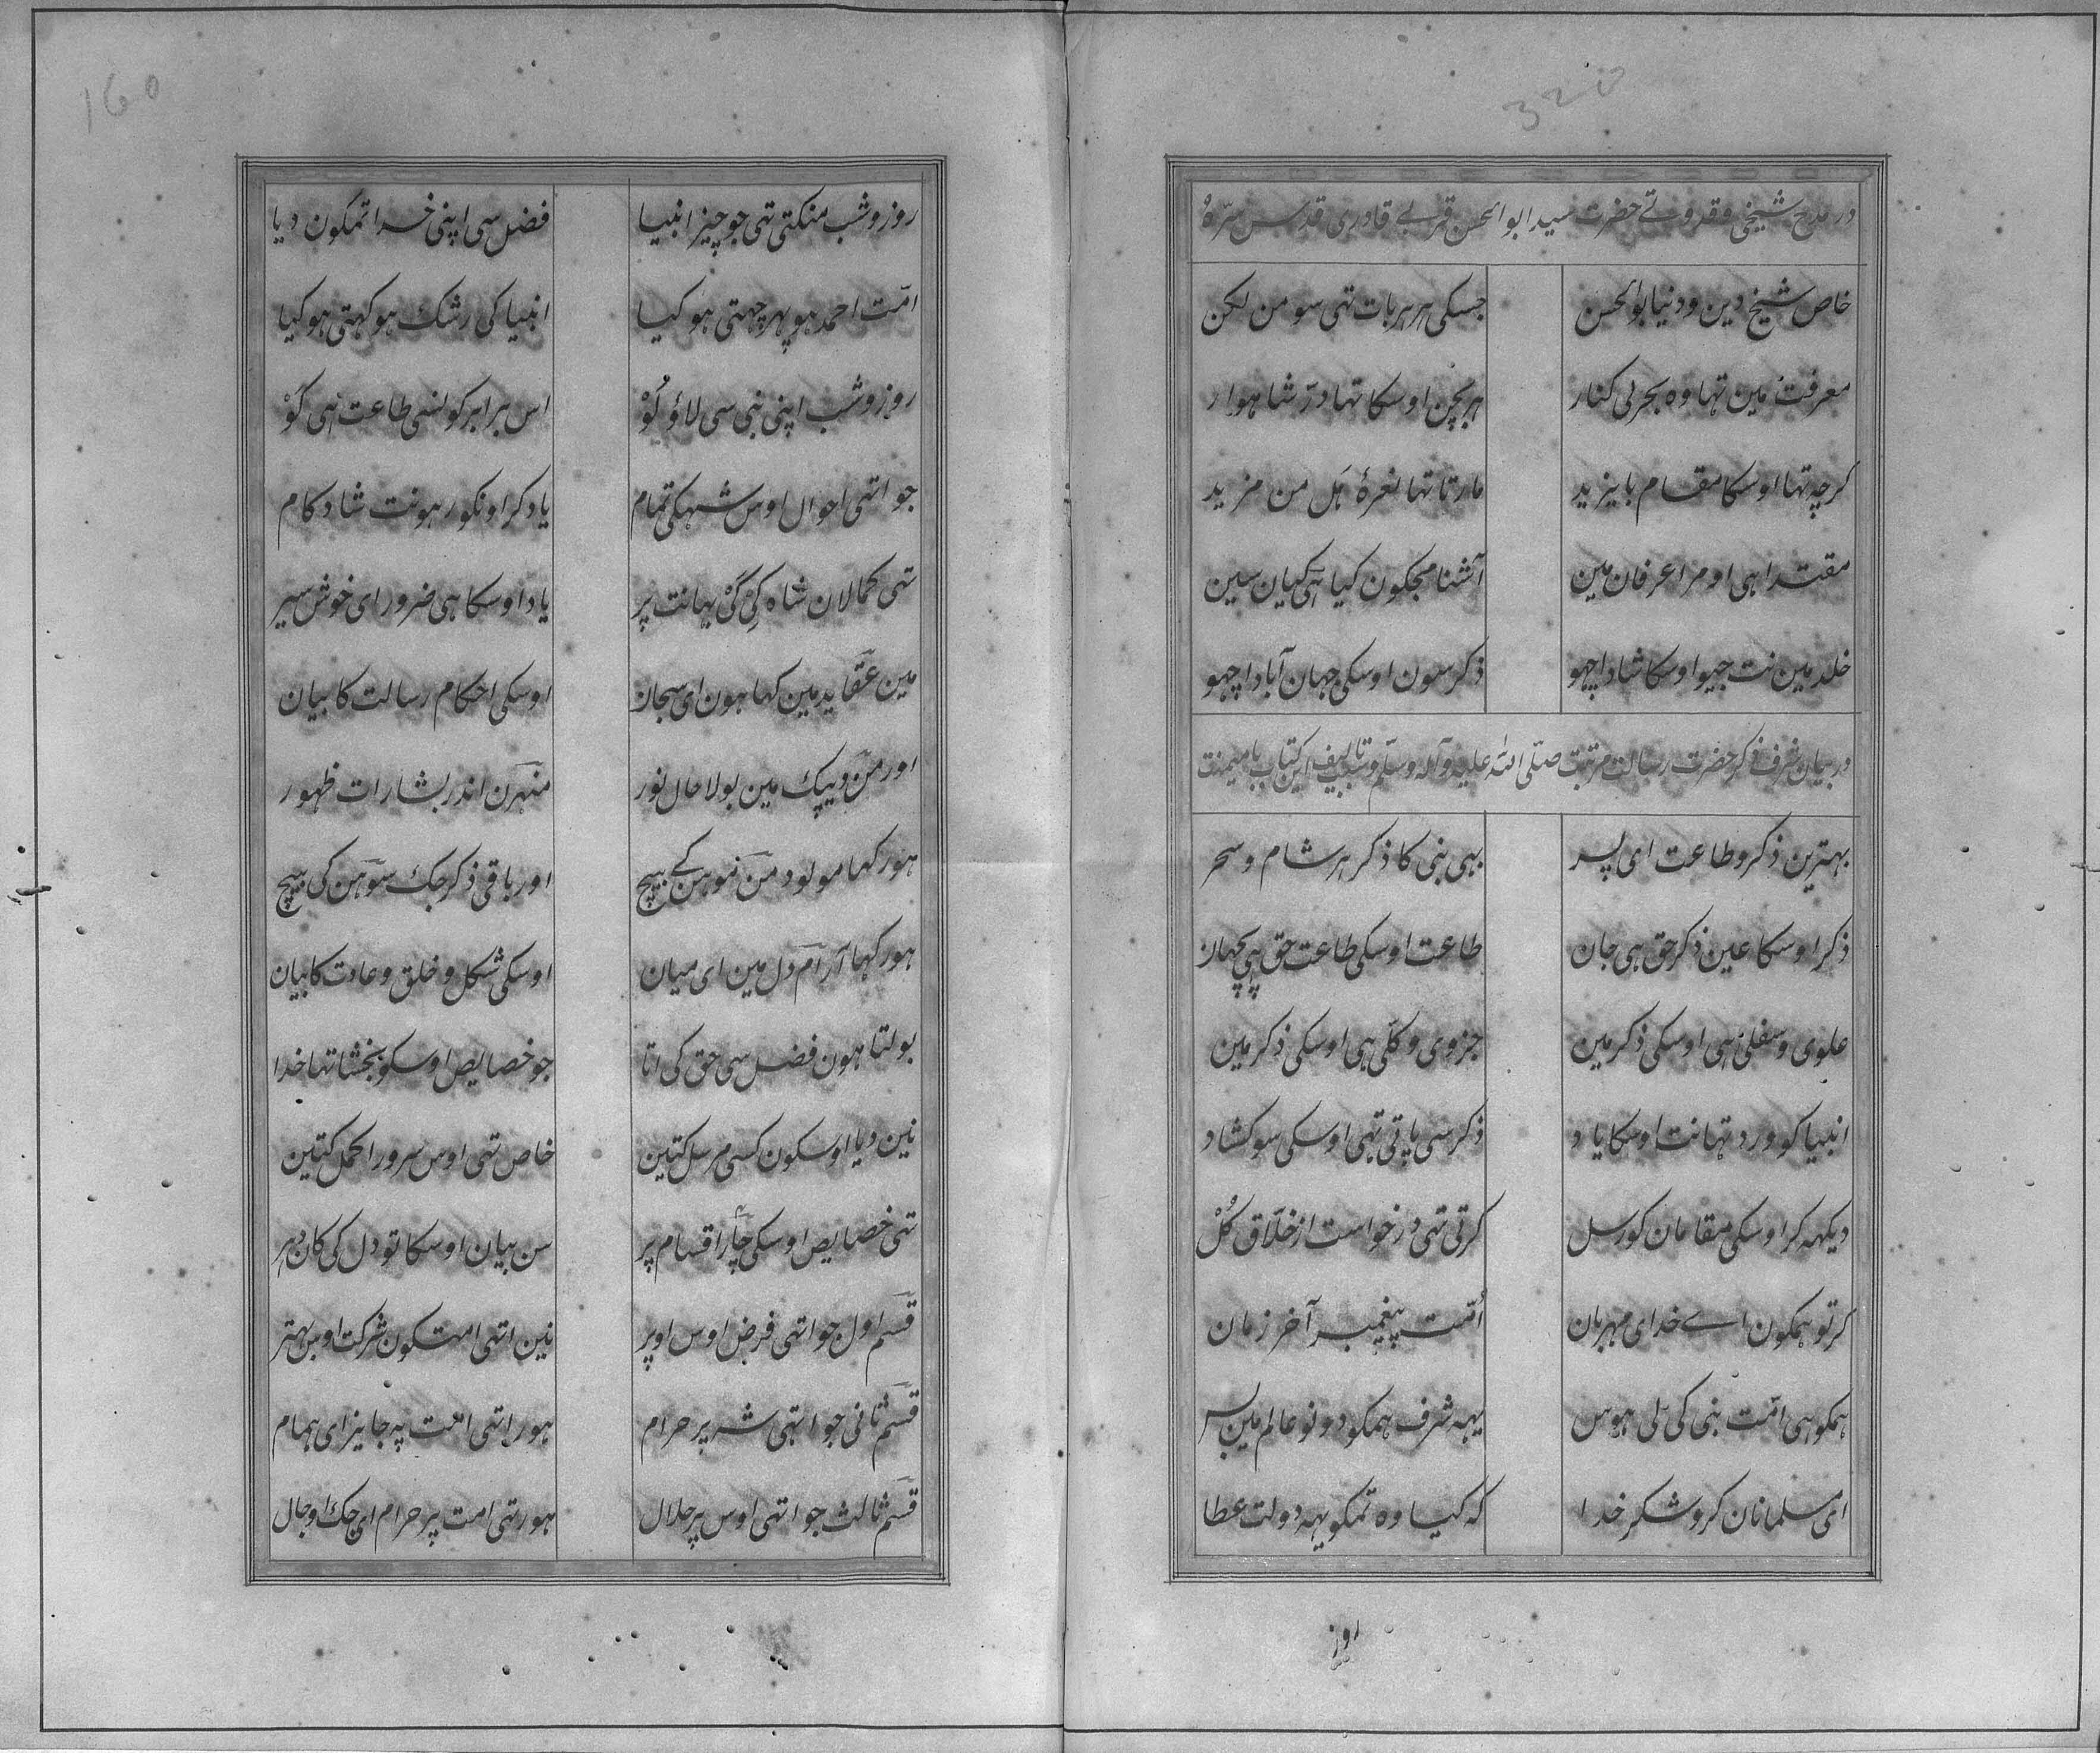 320
در مدح شیخی و قدوتی حضرت سید ابوالحسن قربی قادری قدس سرّہ
خاص شیخ دین و دنیا بوالحسن جسکی ہر ہر بات تہی سو من لکن
معرفت مین تہا وہ بحر بی کنار ہر بچن اوسکا تہا درّ شاہوار
کرچہ تہا اوسکا مقام بایزید مارتا تہا نعرۂ ہَل من مزید
مقتدا ہی او مرا عرفان مین آشنا مجکون کیا ہی کیان سین
خلد مین نت جیو اوسکا شاد اچھو ذکر سون اوسکی جہان آباد اچھو
در بیان شرف ذکر حضرت رسالت مرتبت صلّی اللہ علیہ وآلہ وسلّم وتالیف این کتاب بامیمنت
بہترین ذکر و طاعت ای پسر ہی نبی کا ذکر ہر شام و سحر
ذکر اوسکا عین ذکر حق ہی جان طاعت اوسکی طاعت حق ہی پچھان
علوی و سفلی ہی اوسکی ذکر مین جزوی و کلّی ہی اوسکی ذکر مین
انبیا کو ورد تہا نت اوسکا یاد ذکر سی پاتی تہی اوسکی سو کشاد
دیکہہ کر اوسکی مقامان کو رسل کرتی تہی درخواست از خلّاق کُل
کر تو ہمکون اے خدای مہربان اُمّت پیغمبر آخر زمان
ہمکو ہی امّت نبی کی ہوس یہہ شرف ہمکو دونو عالم مین بس
ای مسلمانان کرو شکر خدا کہ کیا وہ تمکو یہہ دولت عطا
روز
160
روز و شب منکتی تہی جو چیز انبیا فضل سی اپنی خدا تمکون دیا
امّت احمد ہو پہر چہتی ہو کیا انبیا کی رشک ہو کہتی ہو کیا
روز و شب اپنی نبی سی لاؤ لَوْ اس برابر کونسی طاعت ہی کَوْ
جو اتہی احوال اوس شہکی تمام یاد کر اونکو رہو نت شادکام
تہی کمالان شاہ کی کَیْ بہانت پر یاد اوسکا ہی ضرور ای خوش سیر
مین عقاید مین کہا ہون ای سبحان اوسکی احکام رسالت کا بیان
اور من دیپک مین بولا حال نور منہرن اندر بشارات ظہور
ہور کہا مولود من موہن کے بیچ اور باقی ذکر جک سوہن کی بیچ
ہور کہا آرام دل مین ای میان اوسکی شکل و خلق و عادت کا بیان
بولتا ہون فضل سی حق کی اتا جو خصایص اوسکو بخشا تہا خدا
نین دیا اوسکون کسی مرسل کتین خاص تہی اوس سرور اکمل کتین
تہی خصایص اوسکی چار اقسام پر سن بیان اوسکا تو دل کی کان دہر
قسم اول جو اتہی فرض اوس اوپر نین اتہی امتکون شرکت اوس بہتر
قسم ثانی جو اتہی شہ پر حرام ہور اتہی امّت پہ جایز ای ہمام
قسم ثالث جو اتہی اوس پر حلال ہور تہی امت پر حرام ای جک اوجال